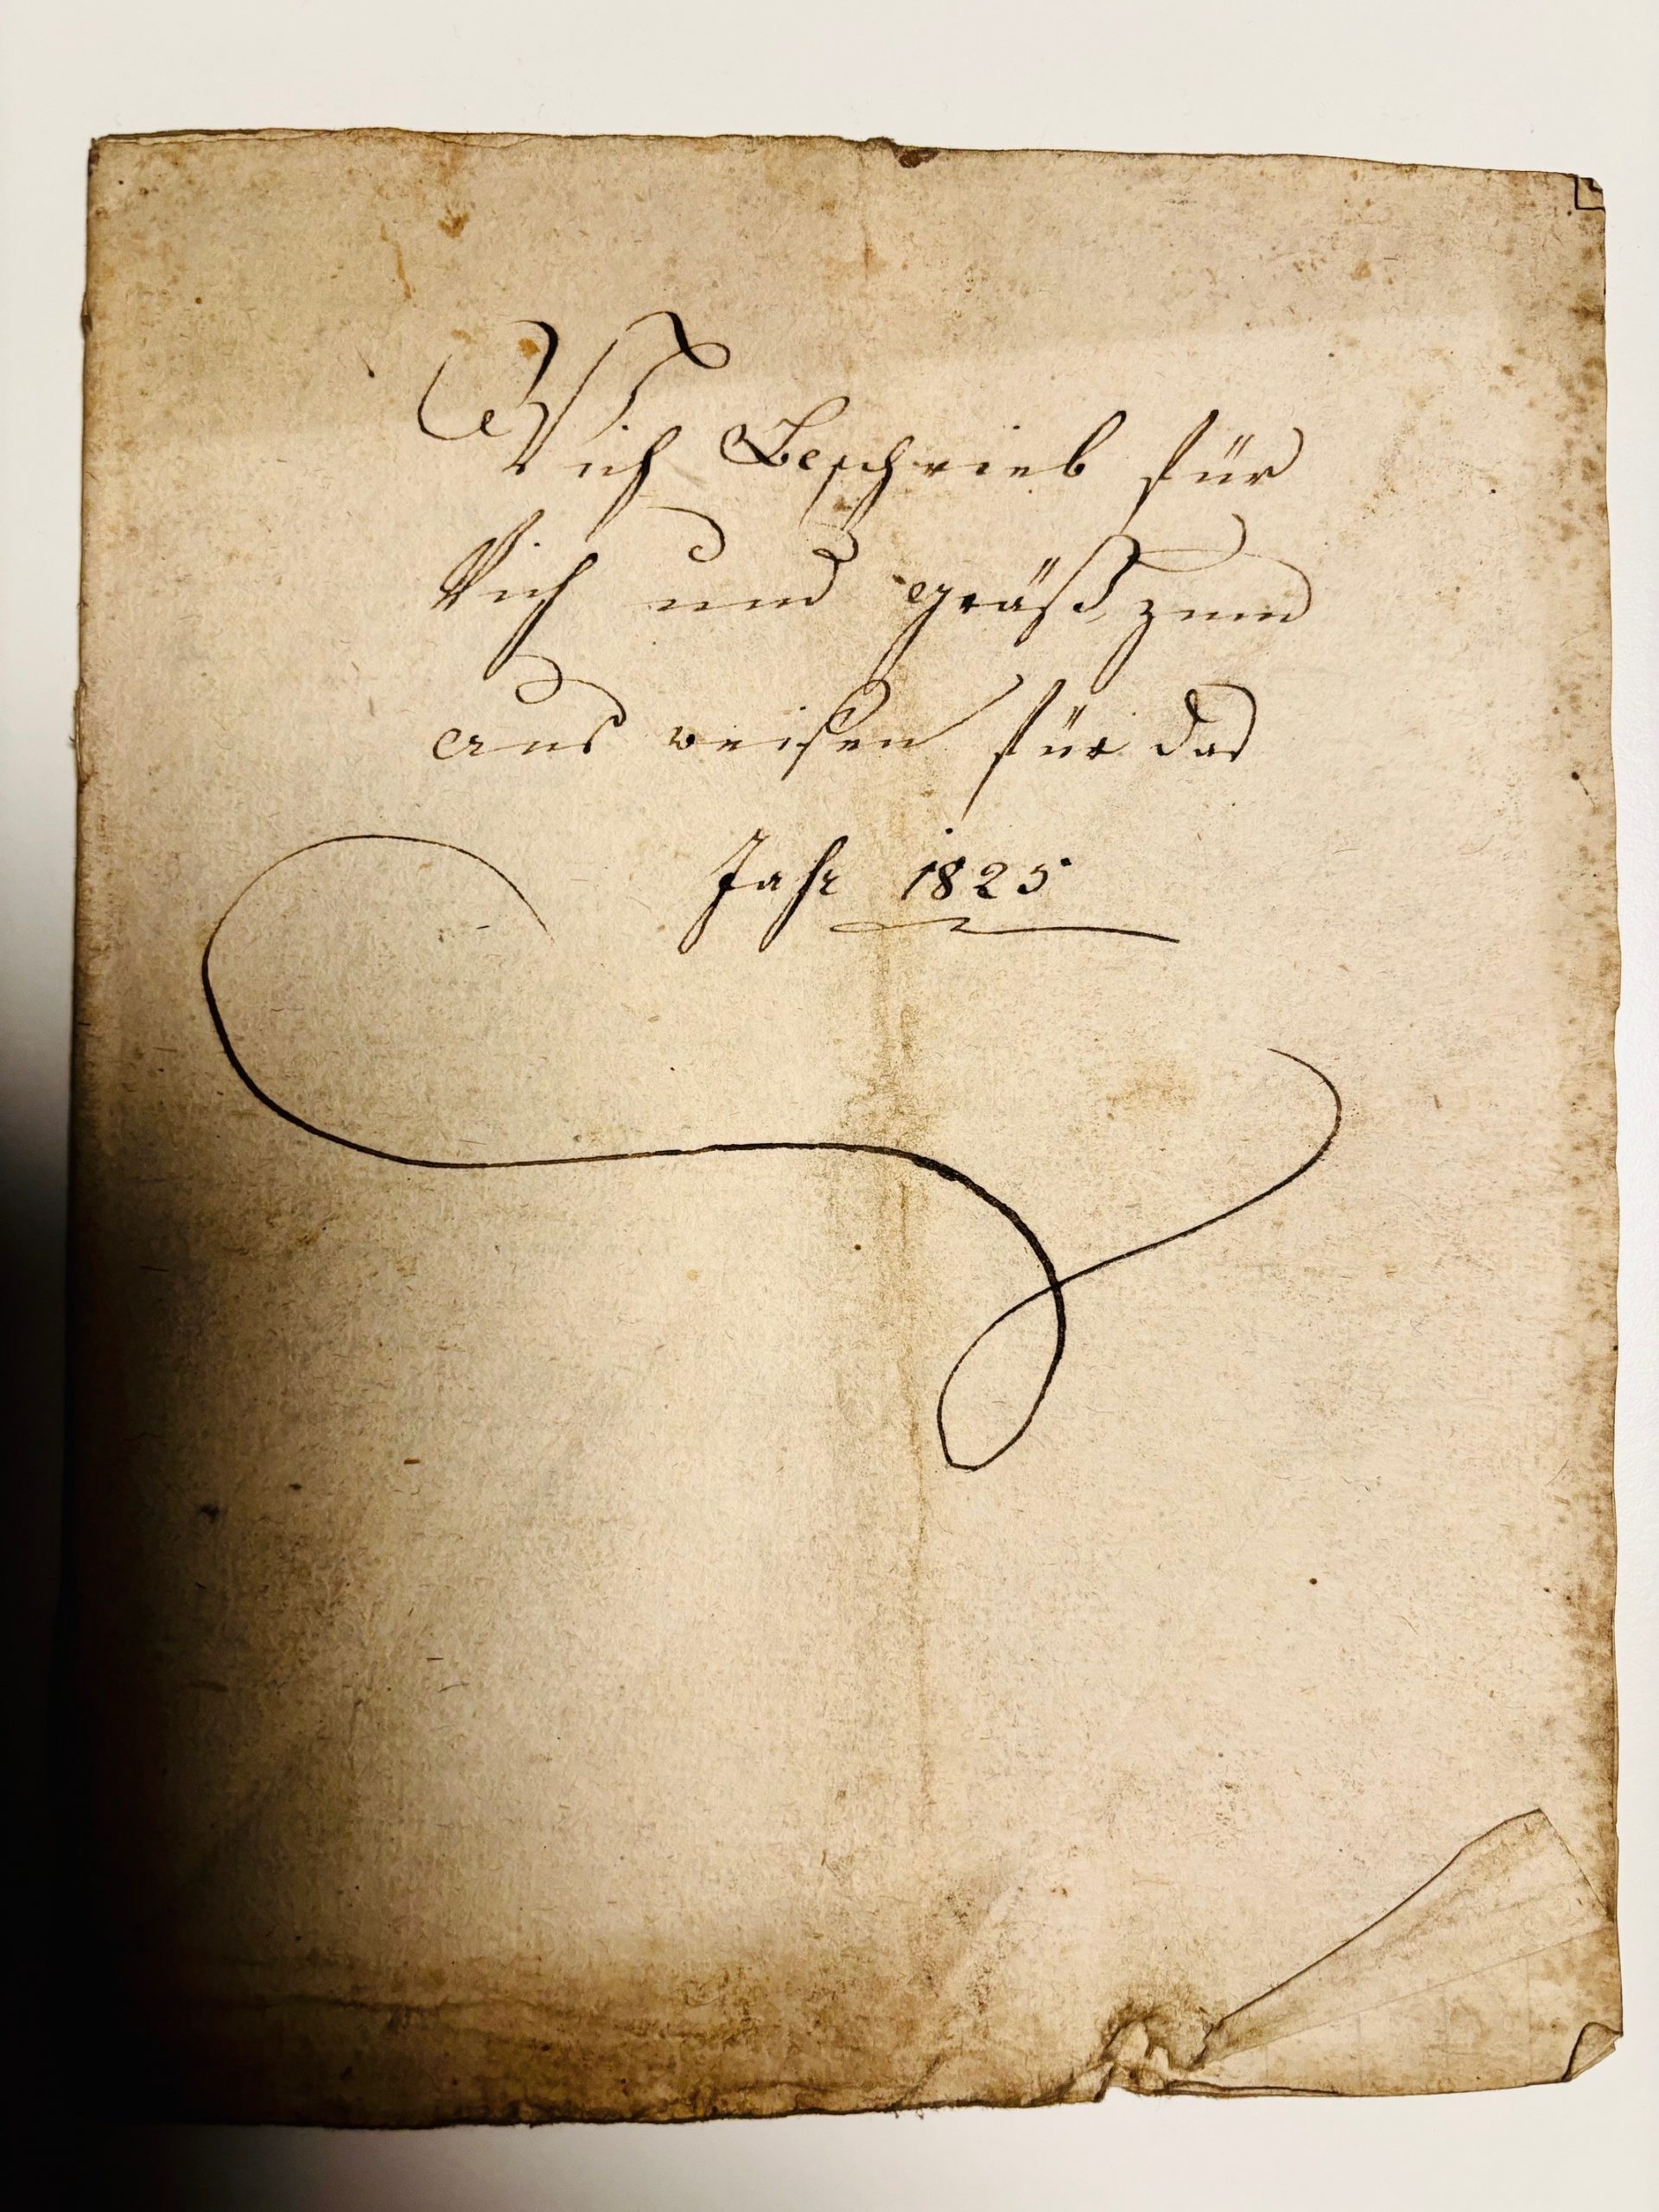 Vich Beschrieb für
Vich und gräß, zum
aus weisen für das
Jahr 1825